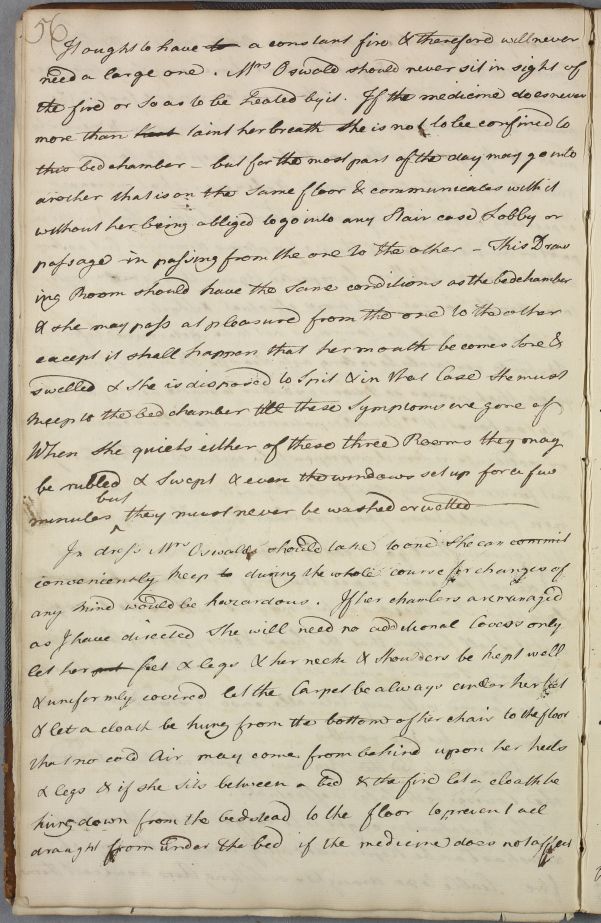 56
It ought to have to a constant fire & therefore will never
need a large one. Mrs Oswald should never sit in sight of
the fire or so as to be heated by it. If the medicine does never
more than taint her breath she is not to be confined to
this bedchamber - but for the most part of the day may go into
another that is on the same floor & communicates with it
without her being obliged to go into any Stair case Lobby or
passage in passing from the one to the other - This Draw
ing Room should have the same conditions as the bedchamber
& she may pass at pleasure from the one to the other
except it shall happen that her mouth becomes sore &
swelled & she is disposed to Spit & in that Case she must
keep to the bed chamber till these Symptoms are gone of
When she quiets either of these three Rooms they may
be rubbed & Swept & even the windows set up for a few
but
minutes they must never be washed or wetted
In dress Mrs Oswald should take to one she can commit
conveniently keep to during the whole course for changes of
any kind would be hazardous. If her chambers are managed
as I have directed she will need no additional covers only
let her feet & legs & her neck & shoulders be kept well
& uniformly covered let the Carpet be always under her feet
& let a cloath be hung from the bottom of her chair to the floor
that no cold Air may come from behind upon her heels
& legs & if she sits between a bed & the fire let a cloath be
hung down from the bedstead to the floor to prevent all
draught from under the bed if the medicine does not affect